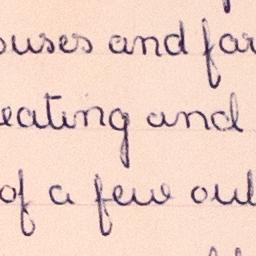 ouses and far
eating and
of a few out